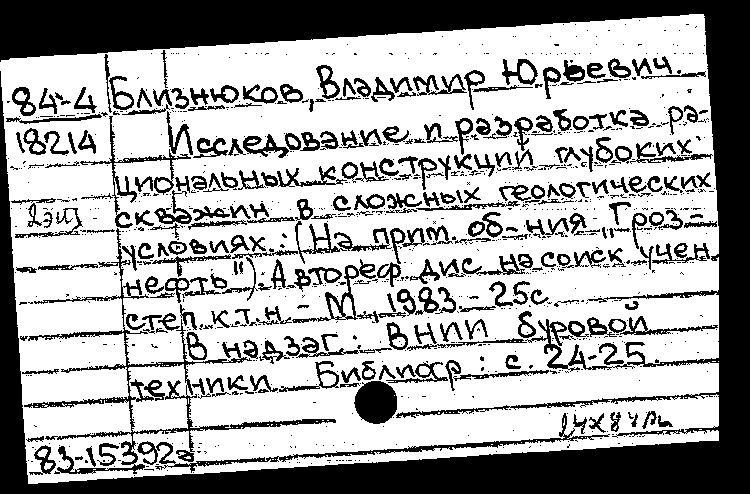 84-4 Близнюков, Владимир Юрьевич.
18214 Исследование и разработка ра-
циональных конструкций глубоких
2экз скважин в сложных геологических
условиях.: (На прим. об-ния „Гроз-
нефть"). Автореф дис на соиск учен
степ к.т.н. - М., 1983. - 25с.
В надзаг.: ВНИИ буровой
техники. Библиогр: с. 24-25.
83-15392а